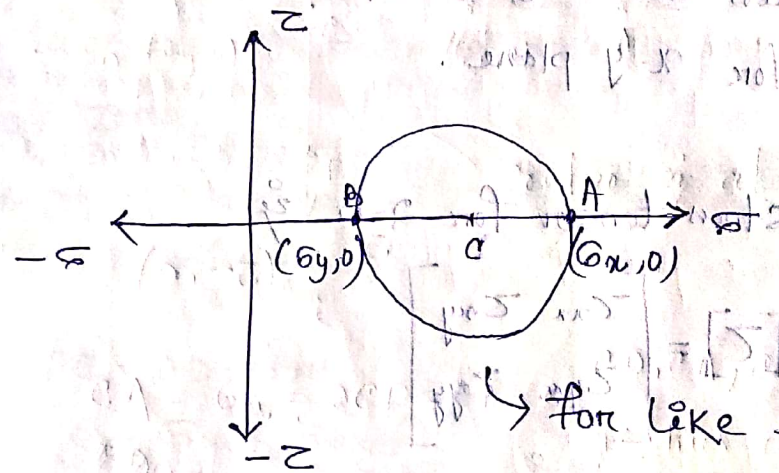 τ
B A
-σ (σy,0) C (σx,0) σ
→ for like
-τ